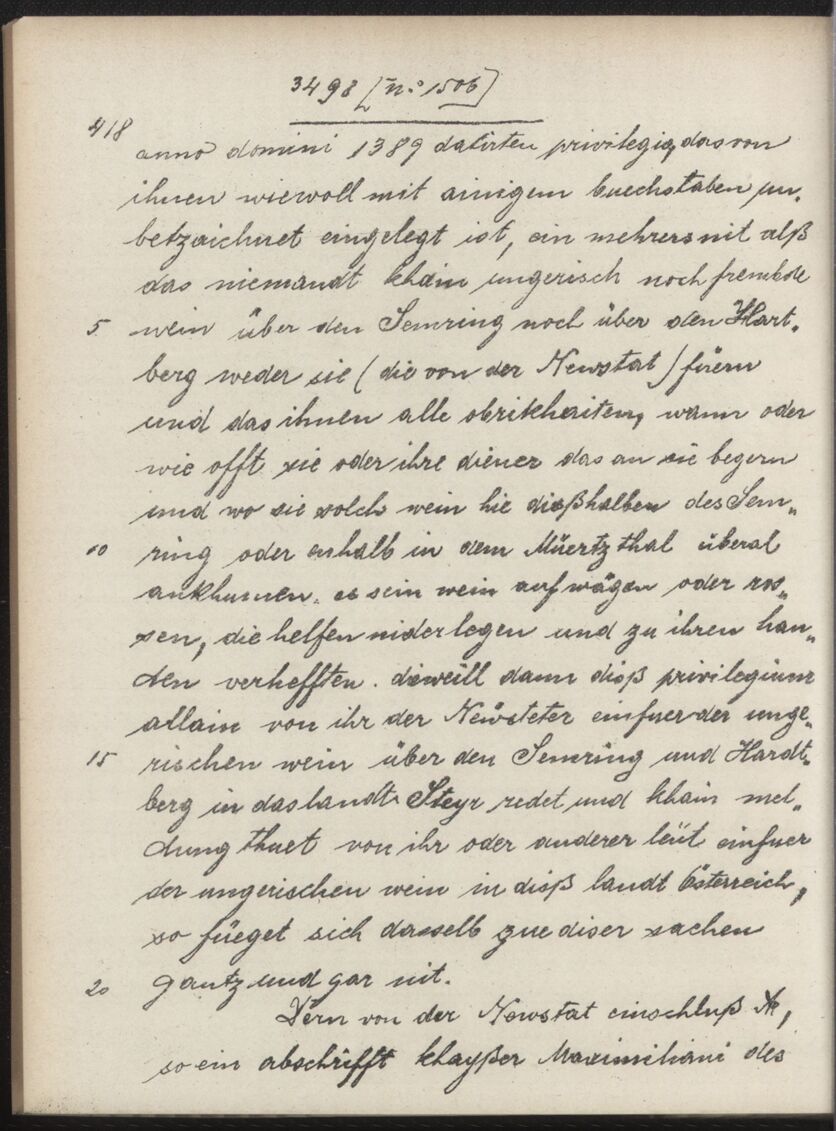 3498 [n.º 1506]
418
anno domini 1389 datirten privilegig, das von
ihnen wiewoll mit ainigem buechstaben un-
betzaichnet eingelegt ist, ein mehrers nit alß
das niemandt khain ungerisch noch frembde
5 wein über den Semring noch über den Hart-
berg weder sie (die von der Newstat) füern
und das ihnen alle obrikhaiten, wann oder
wie offt sie oder ihre diener das an sie begern
und wo sie solch wein hie dißhalben des Sem-
10 ring oder enhalb in dem Müertzthal überal
ankhumen, es sein wein auf wägen oder ros-
sen, die helfen niderlegen und zu ihren han-
den verhefften. dieweill dann diß privilegium
allain von ihr der Newsteter einfuer der unge-
15 rischen wein über den Semring und Hardt-
berg in das landt Steyr redet und khain mel-
dung thuet von ihr oder anderer leüt einfuer
der ungerischen wein in diß landt Österreich,
so füeget sich dasselb zue diser sachen
20 gantz und gar nit.
Dern von der Newstat einschluß A,
so ein abschrifft khayßer Maximiliani des